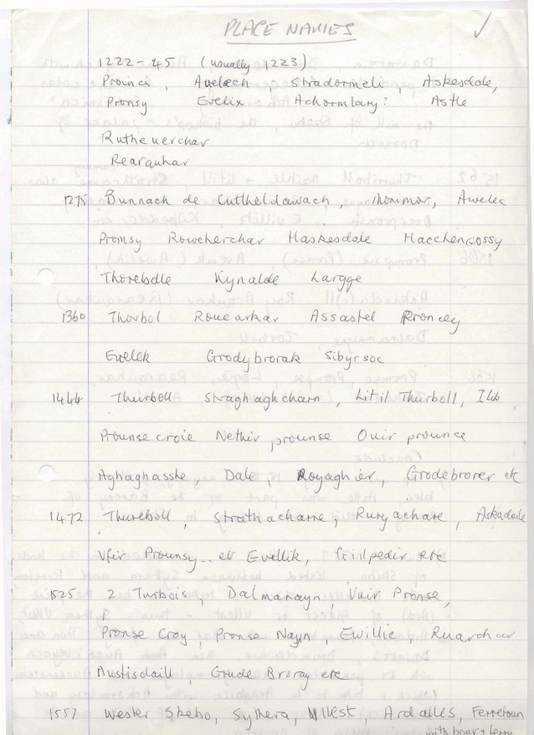 PLACE NAMES
1222-45 (usually 1223)
Proinci, Avelech, Stradormeli, Askesdale,
Pronsy Evelix Achormlary? Astle
Rutheuerchar
Rearquhar
1275 Bunnach de Cuttheldawach, Awelec
Promsy Rowcherchar Haskesdale Macchenrossy
Thorebolle Kynalde Largge
1360 Thorbol Rouearkar Assastel Proncey
Evelek Grodybrorak Sibyrsoc
1464 Thurboll Straghaghcharn, Litil Thurboll,
Prounse croie Nethir prounse Ouir prounce
Aghaghasshe, Dale Royaghier, Grodebrorer etc
1472 Thureboll, Strathacharne, Ruryachare, Askadale
Vfir Prounsy.. et Evellik, etc
1525 2 Turbois, Dalmanayn, Vuir Pronse,
Pronse Croy, Pronse Nayn, Ewillic Ruarchar
Austisdaill, Grude Broray etc
1557 Wester Skebo, Sythera, Ardalles, Ferretoun
with boat & ferry